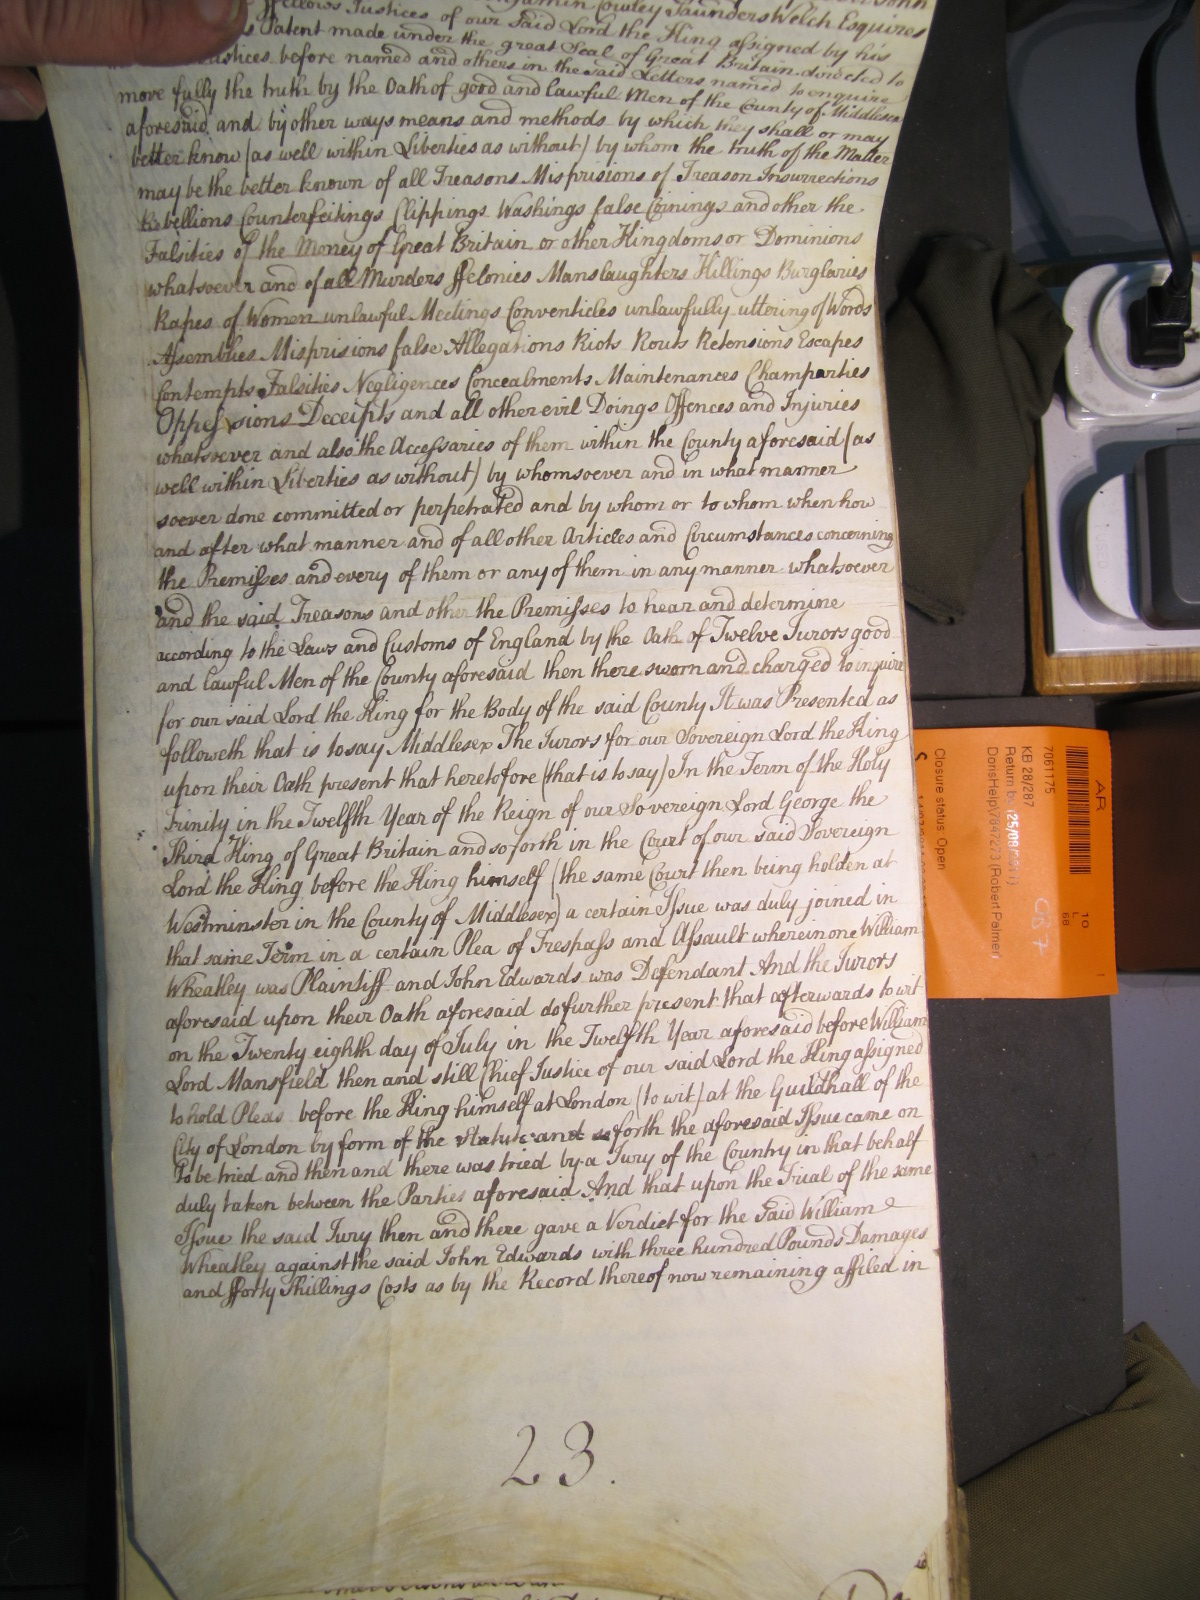 Fellows Justices of our Said Lord the King assigned by his
Patent made under the great Seal of Great Britain directed to
Justices before named and others in the said Letters named to enquire
more fully the truth by the Oath of good and Lawful Men of the County of Middlesex
aforesaid and by other ways means and methods by which they shall or may
better know (as well within Liberties as without) by whom the truth of the Matter
may be the better known of all Treasons Misprisions of Treason Insurrections
Rebellions Counterfeitings Clippings Washings false Coinings and other the
Falsities of the Money of Great Britain or other Kingdoms or Dominions
whatsoever and of all Murders ffelonies Manslaughters Killings Burglaries
Rapes of Women unlawful Meetings Conventicles unlawfully uttering of Words
Assemblies Misprisions false Allegations Riots Routs Retensions Escapes
Contempts Falsities Negligences Concealments Maintenances Champarties
Oppressions Deceipts and all other evil Doings Offences and Injuries
whatsoever and also the Accessaries of them within the County aforesaid (as
well within Liberties as without) by whomsoever and in what manner
soever done committed or perpetrated and by whom or to whom when how
and after what manner and of all other Articles and Circumstances concerning
the Premisses and every of them or any of them in any manner whatsoever
and the said Treasons and other the Premisses to hear and determine
according to the Laws and Customs of England by the Oath of Twelve Jurors good
and lawful Men of the County aforesaid then there sworn and charged to inquire
for our said Lord the King for the Body of the said County It was Presented as
followeth that is to say Middlesex The Jurors for our Sovereign Lord the King
upon their Oath present that heretofore (that is to say) In the Term of the Holy
Trinity in the Twelfth Year of the Reign of our Sovereign Lord George the
Third King of Great Britain and so forth in the Court of our said Sovereign
Lord the King before the King himself (the same Court then being holden at
Westminster in the County of Middlesex) a certain Issue was duly joined in
that same Term in a certain Plea of Trespass and Assault wherein one William
Wheatley was Plaintiff and John Edwards was Defendant And the Jurors
aforesaid upon their Oath aforesaid do further present that afterwards to wit
on the Twenty eighth day of July in the Twelfth Year aforesaid before William
Lord Mansfield then and still Chief Justice of our said Lord the King assigned
to hold Pleas before the King himself at London (to wit) at the Guildhall of the
City of London by form of the Statute and so forth the aforesaid Issue came on
to be tried and then and there was tried by a Jury of the Country in that behalf
duly taken between the Parties aforesaid And that upon the Trial of the same
Issue the said Jury then and there gave a Verdict for the said William
Wheatley against the said John Edwards with three hundred Pounds Damages
and fforty Shillings Costs as by the Record thereof now remaining affiled in
23.
AR
7061175
KB 28/287
Return by 25/08/2011
DorisHelp\7847273 (Robert Palmer)
Closure status: Open